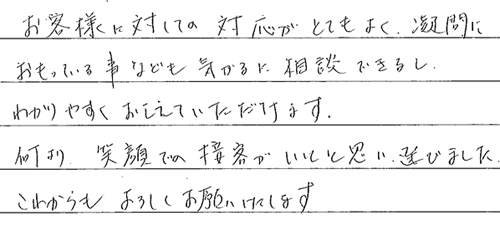 お客様に対しての対応がとてもよく、疑問に
おもっている事なども気がるに相談できるし、
わかりやすくおしえていただけます。
何より、笑顔での接客がいいと思い、選びました。
これからもよろしくお願いいたします